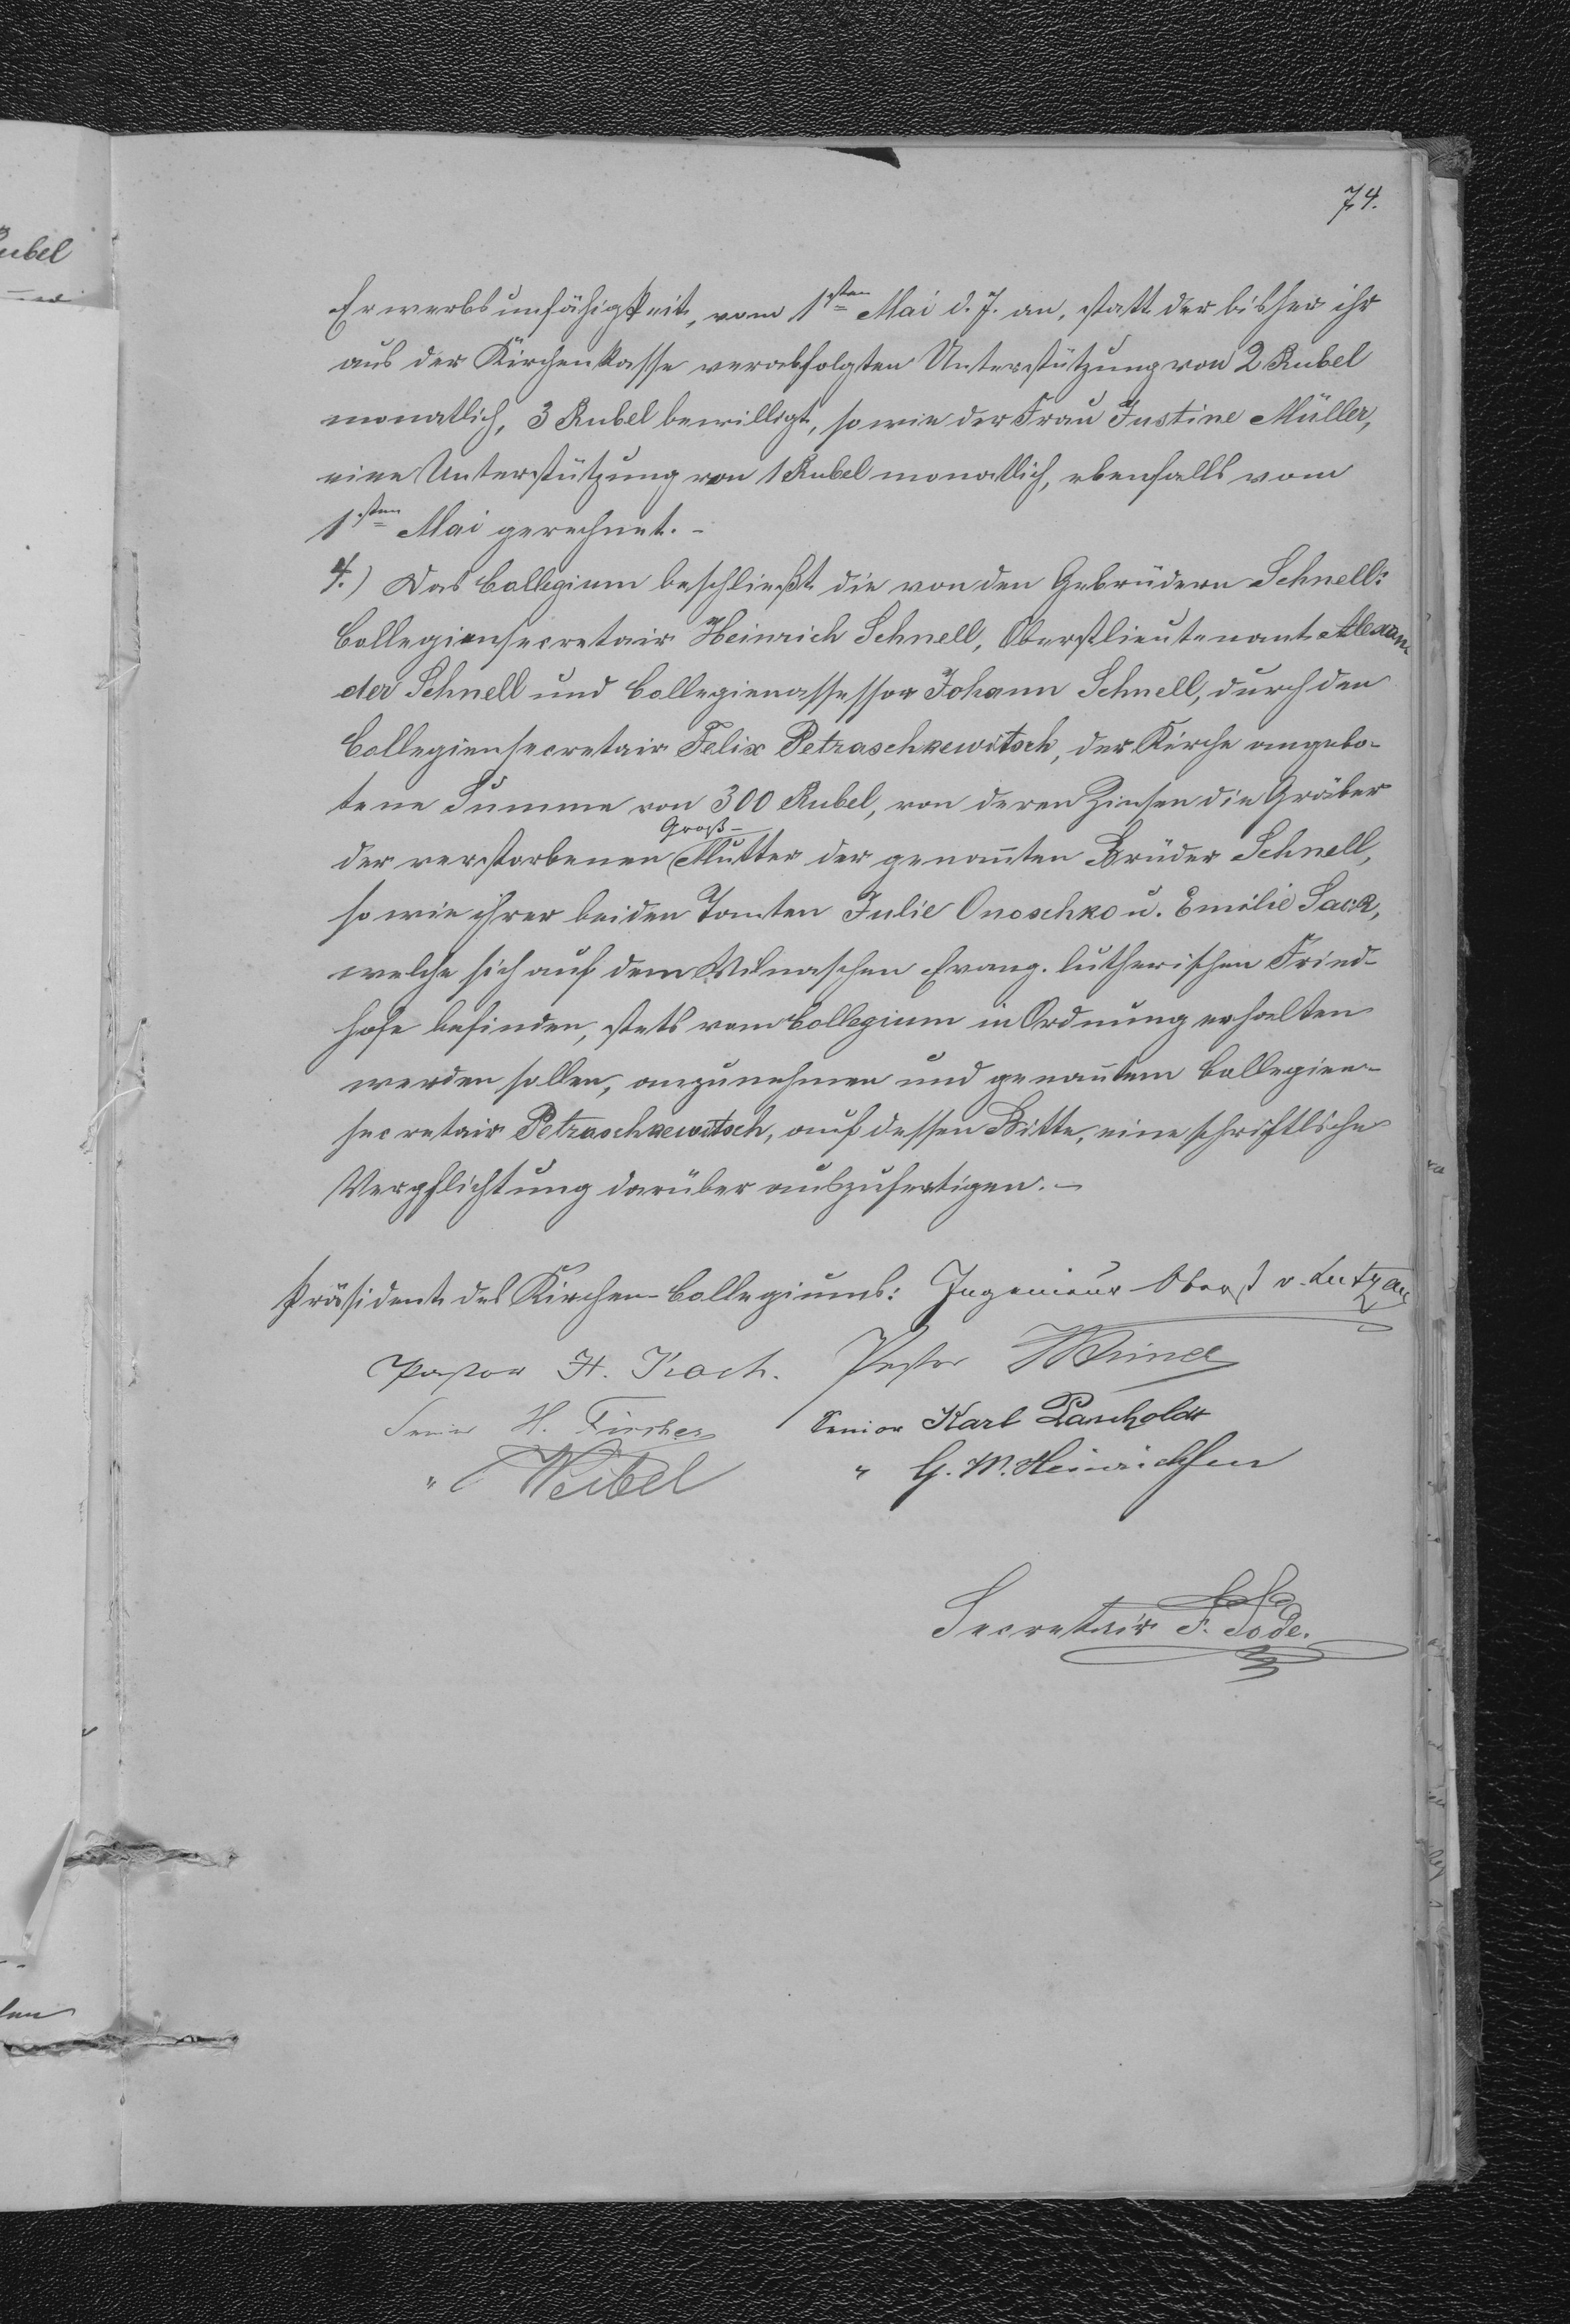 74.
ubel
Erwerbsunfähigkeit, vom 1sten Mai d. J. an, statt der bisher ihr
aus der Kirchenkasse verabfolgten Unterstützung von 2 Rubel
monatlich, 3 Rubel bewilligt, sowie der Frau Justine Müller,
eine Unterstützung von 1 Rubel monatlich, ebenfalls vom
1sten Mai gerechnet. –
4.) Das Collegium beschließt die von den Gebrüdern Schnell:
Collegiensecretair Heinrich Schnell, Oberstlieutenant Alexan
der Schnell und Collegienassessor Johann Schnell, durch den
Collegiensecretair Felix Petraschkewitsch, der Kirche angebo-
tene Summe von 300 Rubel, von deren Zinsen die Gräber
Groß-
der verstorbenen Mutter der genan̅ten Brüder Schnell,
sowie ihrer beiden Tanten Julie Onoschko u. Emilie Sack,
welche sich auf dem Wilnaschen Evang. lutherischen Fried-
hofe befinden, stets vom Collegium in Ordnung erhalten
werden sollen, anzunehmen und genan̅tem Collegien-
secretair Petraschkewitsch, auf dessen Bitte, eine schriftliche
Verpflichtung darüber auszufertigen. –
Präsident des Kirchen-Collegiums: Ingenieur Oberst v. Lutzau
Pastor H. Koch. Pastor
Senior H. Fischer Senior Karl Pascholdt
" Weibel " G. W. Heinrichsen
Secretair F. Sode.
len